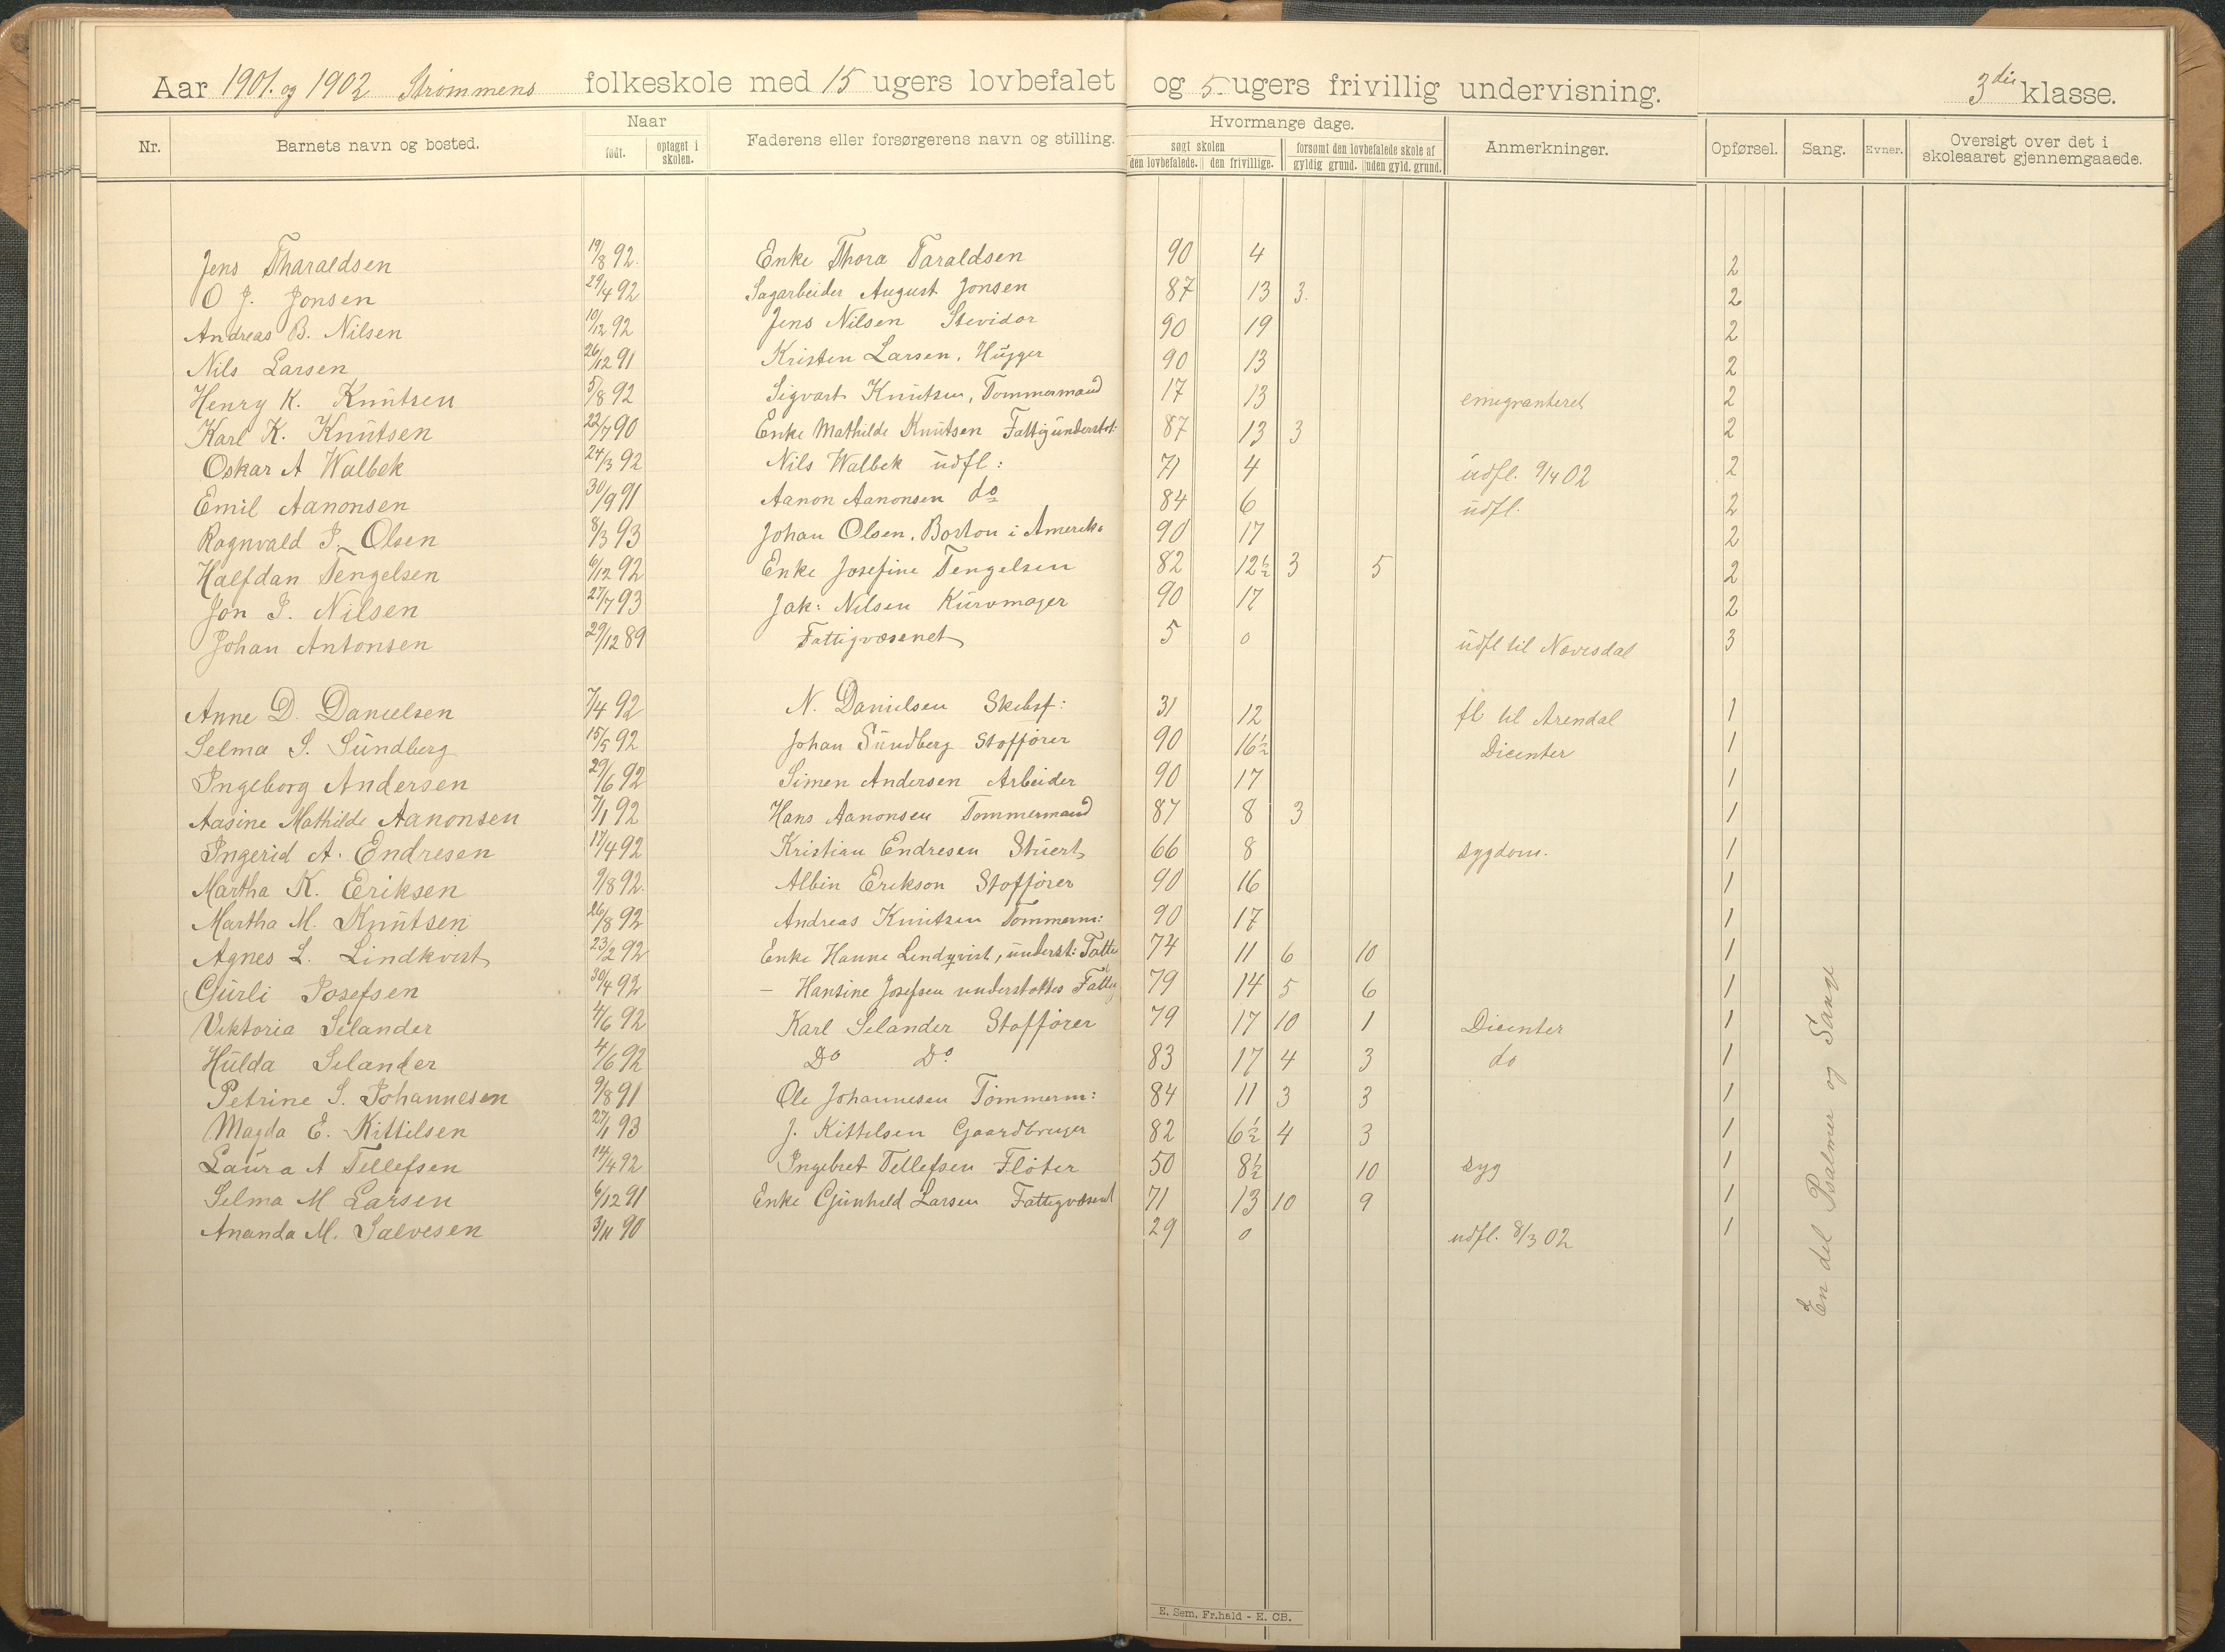 Aar 1901. og 1902 Strømmens folkeskole med 15 ugers lovbefalet og 5 ugers frivillig undervisning. 3die klasse.
Nr. Barnets navn og bosted. Naar født. optaget i skolen. Faderens eller forsørgerens navn og stilling. Hvormange dage. søgt skolen den lovbefalede. den frivillige. forsømt den lovbefalede skole af gyldig grund. uden gyld. grund. Anmerkninger. Opførsel. Sang. Evner. Oversigt over det i skoleaaret gjennemgaaede.
Jens Tharaldsen 19/8 92. Enke Thora Taraldsen 90 4 2
O J. Jonsen 29/4 92 Sagarbeider August Jonsen 87 13 3. 2
Andreas B. Nilsen 10/12 92 Jens Nilsen Stevidor 90 19 2
Nils Larsen 26/12 91 Kristen Larsen, Hugger 90 13 2
Henry K. Knutsen 5/8 92 Sigvart Knutsen, Tømmermand 17 13 emigranteret 2
Karl K. Knutsen 22/7 90 Enke Mathilde Knutsen Fattigunderstøt: 87 13 3 2
Oskar A Walbek 24/3 92 Nils Walbek udfl: 71 4 udfl. 9/4 02 2
Emil Aanonsen 30/9 91 Aanon Aanonsen do 84 6 udfl. 2
Ragnvald J. Olsen 8/3 93 Johan Olsen, Boston i Amerika 90 17 2
Halfdan Tengelsen 6/12 92 Enke Josefine Tengelsen 82 12½ 3 5 2
Jon J. Nilsen 27/7 93 Jak: Nilsen Kurvmager 90 17 2
Johan Antonsen 29/12 89 Fattigvæsenet 5 0 udfl til Nævisdal 3
Anne D. Danielsen 7/4 92 N. Danielsen Skibsf: 31 12 fl. til Arendal 1
Selma S. Sundberg 15/5 92 Johan Sundberg Støffører 90 16½ Dicenter 1
Ingeborg Andersen 29/6 92 Simen Andersen Arbeider 90 17 1
Aasine Mathilde Aanonsen 7/1 92 Hans Aanonsen Tømmermand 87 8 3 1
Ingerid A. Endresen 17/4 92 Kristian Endresen Stuert 66 8 sygdom. 1
Martha K. Eriksen 9/8 92. Albin Erikson Støffører 90 16 1
Martha M. Knutsen 26/8 92 Andreas Knutsen Tømmerm: 90 17 1
Agnes L. Lindkvist 23/2 92 Enke Hanne Lindqvist, underst: Fatti 74 11 6 10 1
Gurli Josefsen 30/4 92 – Hansine Josefsen understøttes Fattig 79 14 5 6 1
Viktoria Selander 4/6 92 Karl Selander Støffører 79 17 10 1 Dicenter 1
Hulda Selander 4/6 92 Do Do 83 17 4 3 do 1
Petrine S. Johannesen 9/8 91 Ole Johannesen Tømmerm: 84 11 3 3 1
Magda E. Kittilsen 27/1 93 J. Kittelsen Gaardbruger 82 6½ 4 3 1
Laura A Tellefsen 14/4 92 Ingebret Tellefsen Fløter 50 8½ 10 syg 1
Selma M Larsen 6/12 91 Enke Gunhild Larsen Fattigvæsent 71 13 10 9 1
Ananda M. Salvesen 3/11 90 29 0 udfl. 8/3 02 1
En del Psalmer og Sange
E. Sem, Fr.hald - E. CB.